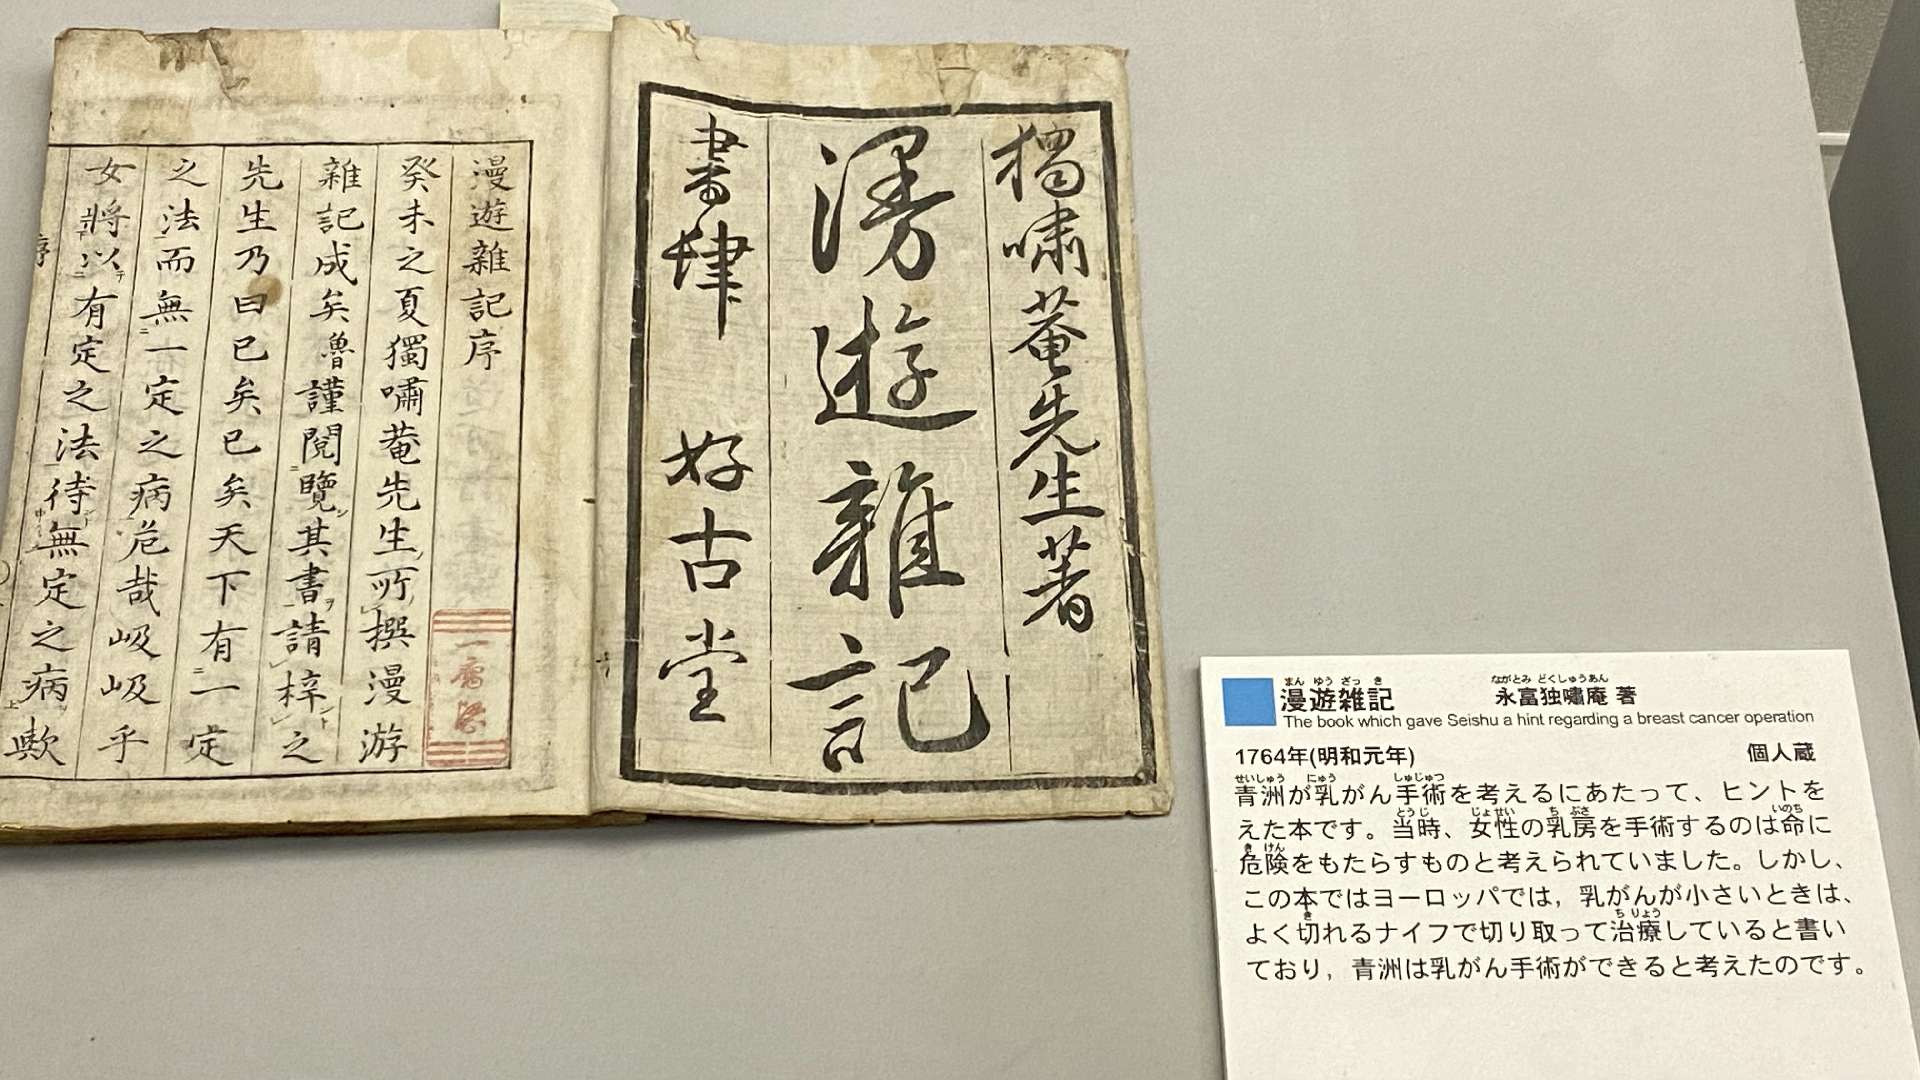 獨嘯菴先生著
漫遊雜記
書肆 好古堂
漫遊雜記序
癸未之夏獨嘯菴先生所撰漫游
雜記成矣魯謹閱覽其書請梓之
先生乃曰已矣已矣天下有一定
之法而無一定之病危哉岌岌乎
女將以有定之法待無定之病歟
序
漫遊雑記 永富独嘯庵 著
The book which gave Seishu a hint regarding a breast cancer operation
1764年(明和元年) 個人蔵
青洲が乳がん手術を考えるにあたって、ヒントを
えた本です。当時、女性の乳房を手術するのは命に
危険をもたらすものと考えられていました。しかし、
この本ではヨーロッパでは，乳がんが小さいときは、
よく切れるナイフで切り取って治療していると書い
ており，青洲は乳がん手術ができると考えたのです。